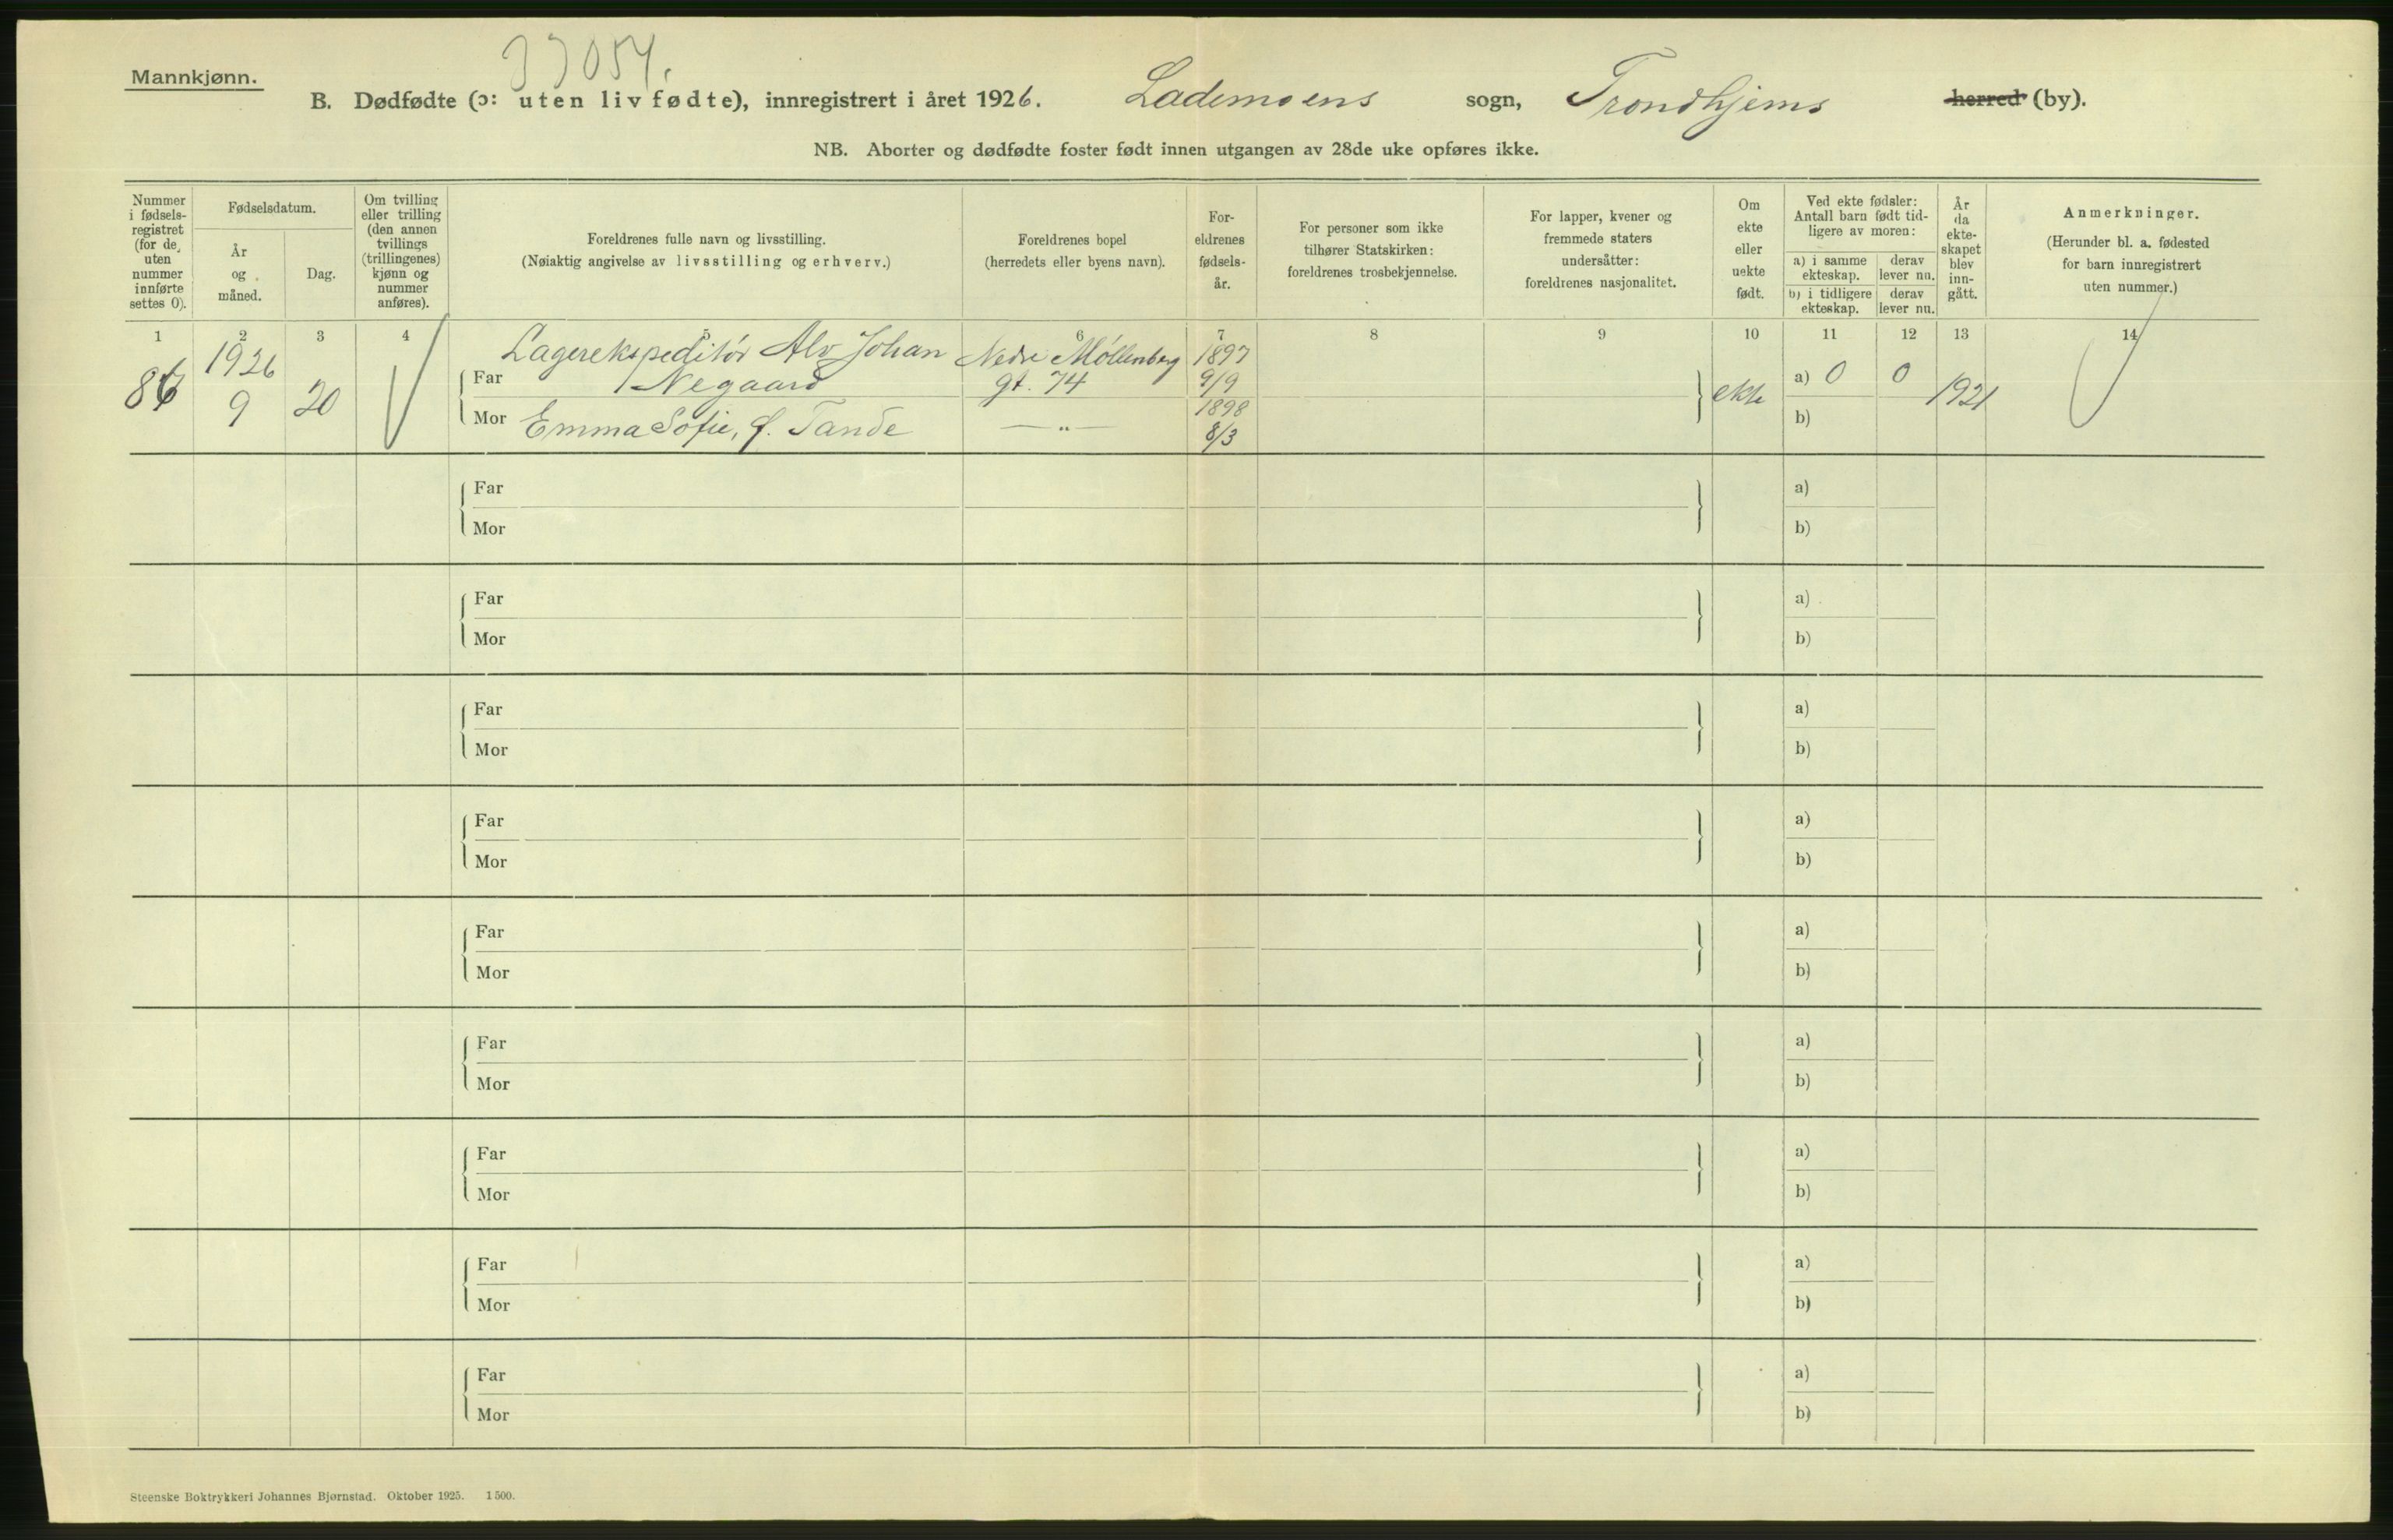 Mannkjønn.
33054.
B. Dødfødte (ɔ: uten liv fødte), innregistrert i året 1926. Lademoens sogn, Trondhjems herred (by).
NB. Aborter og dødfødte foster født innen utgangen av 28de uke opføres ikke.
Nummer
i fødsels-
registret
(for de
uten
nummer
innførte
settes 0).
Fødselsdatum.
År
og
måned.
Dag.
Om tvilling
eller trilling
(den annen
tvillings
(trillingenes)
kjønn og
nummer
anføres).
Foreldrenes fulle navn og livsstilling.
(Nøiaktig angivelse av livsstilling og erhverv.)
Foreldrenes bopel
(herredets eller byens navn).
For-
eldrenes
fødsels-
år.
For personer som ikke
tilhører Statskirken:
foreldrenes trosbekjennelse.
For lapper, kvener og
fremmede staters
undersåtter:
foreldrenes nasjonalitet.
Om
ekte
eller
uekte
født.
Ved ekte fødsler:
Antall barn født tid-
ligere av moren:
a) i samme
ekteskap.
derav
lever nu.
b) i tidligere
ekteskap.
derav
lever nu.
År
da
ekte-
skapet
blev
inn-
gått.
Anmerkninger.
(Herunder bl. a. fødested
for barn innregistrert
uten nummer.)
1 2 3 4 5 6 7 8 9 10 11 12 13 14
86
1926
9
20
Lagerekspeditör Alv Johan
Far Negaard
Mor Emma Sofie, f. Tande
Nedre Möllenberg
gt. 74
— " —
1897
9/9
1898
8/3
ekte
a) 0 0
b)
1921
Far a)
Mor b)
Far a)
Mor b)
Far a)
Mor b)
Far a)
Mor b)
Far a)
Mor b)
Far a)
Mor b)
Far a)
Mor b)
Far a)
Mor b)
Far a)
Mor b)
Steenske Boktrykkeri Johannes Bjørnstad. Oktober 1925. 1500.